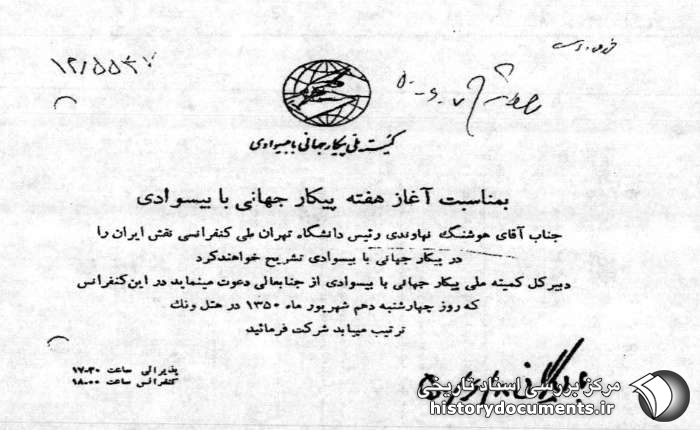 ۱۲/۵۵۲۷
کمیته ملی پیکار جهانی با بیسوادی
بمناسبت آغاز هفته پیکار جهانی با بیسوادی
جناب آقای هوشنگ نهاوندی رئیس دانشگاه تهران طی کنفرانسی نقش ایران را
در پیکار جهانی با بیسوادی تشریح خواهندکرد
دبیرکل کمیته ملی پیکار جهانی با بیسوادی از جنابعالی دعوت مینماید در این کنفرانس
که روز چهارشنبه دهم شهریور ماه ۱۳۵۰ در هتل ونک
ترتیب میباید شرکت فرمائید
پذیرائی ساعت ۱۷-۳۰
کنفرانس ساعت ۱۸-۰۰
مرکز بررسی اسناد تاریخی
historydocuments.ir